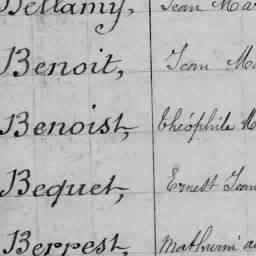 Bellamy, Jean Mar
Benoit, Jean Ma
Benoist, théophile M
Bequet, Ernest Jean
Berrest, Mathurin a